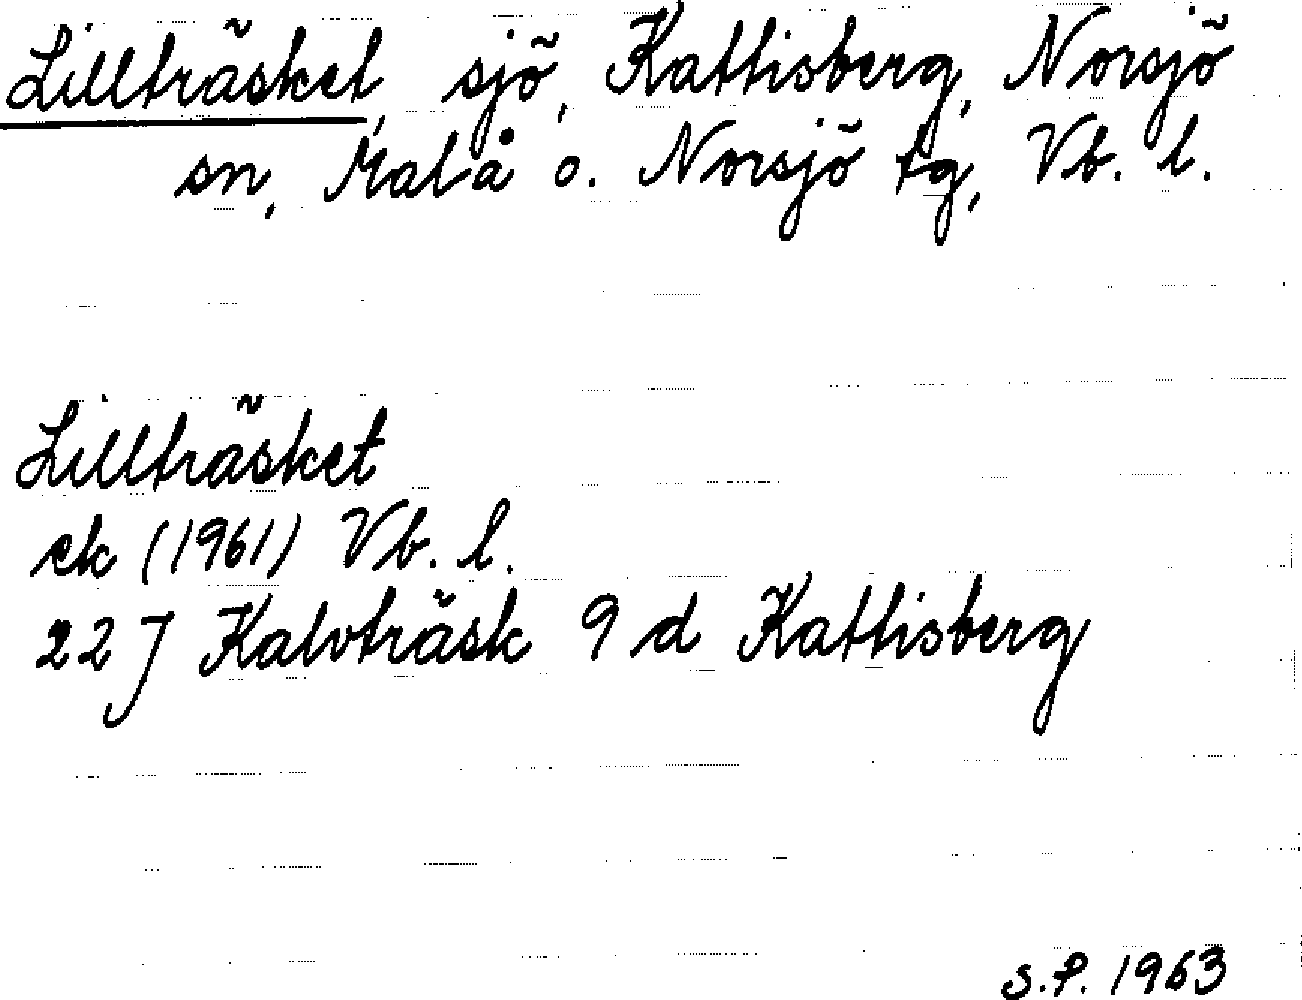 Lillträsket, sjö, Kattisberg, Norsjö
sn, Malå o. Norsjö tg, Vb. l.
Lillträsket
ek (1961) Vb. l.
22 J Kalvträsk 9 d Kattisberg
S.P. 1963